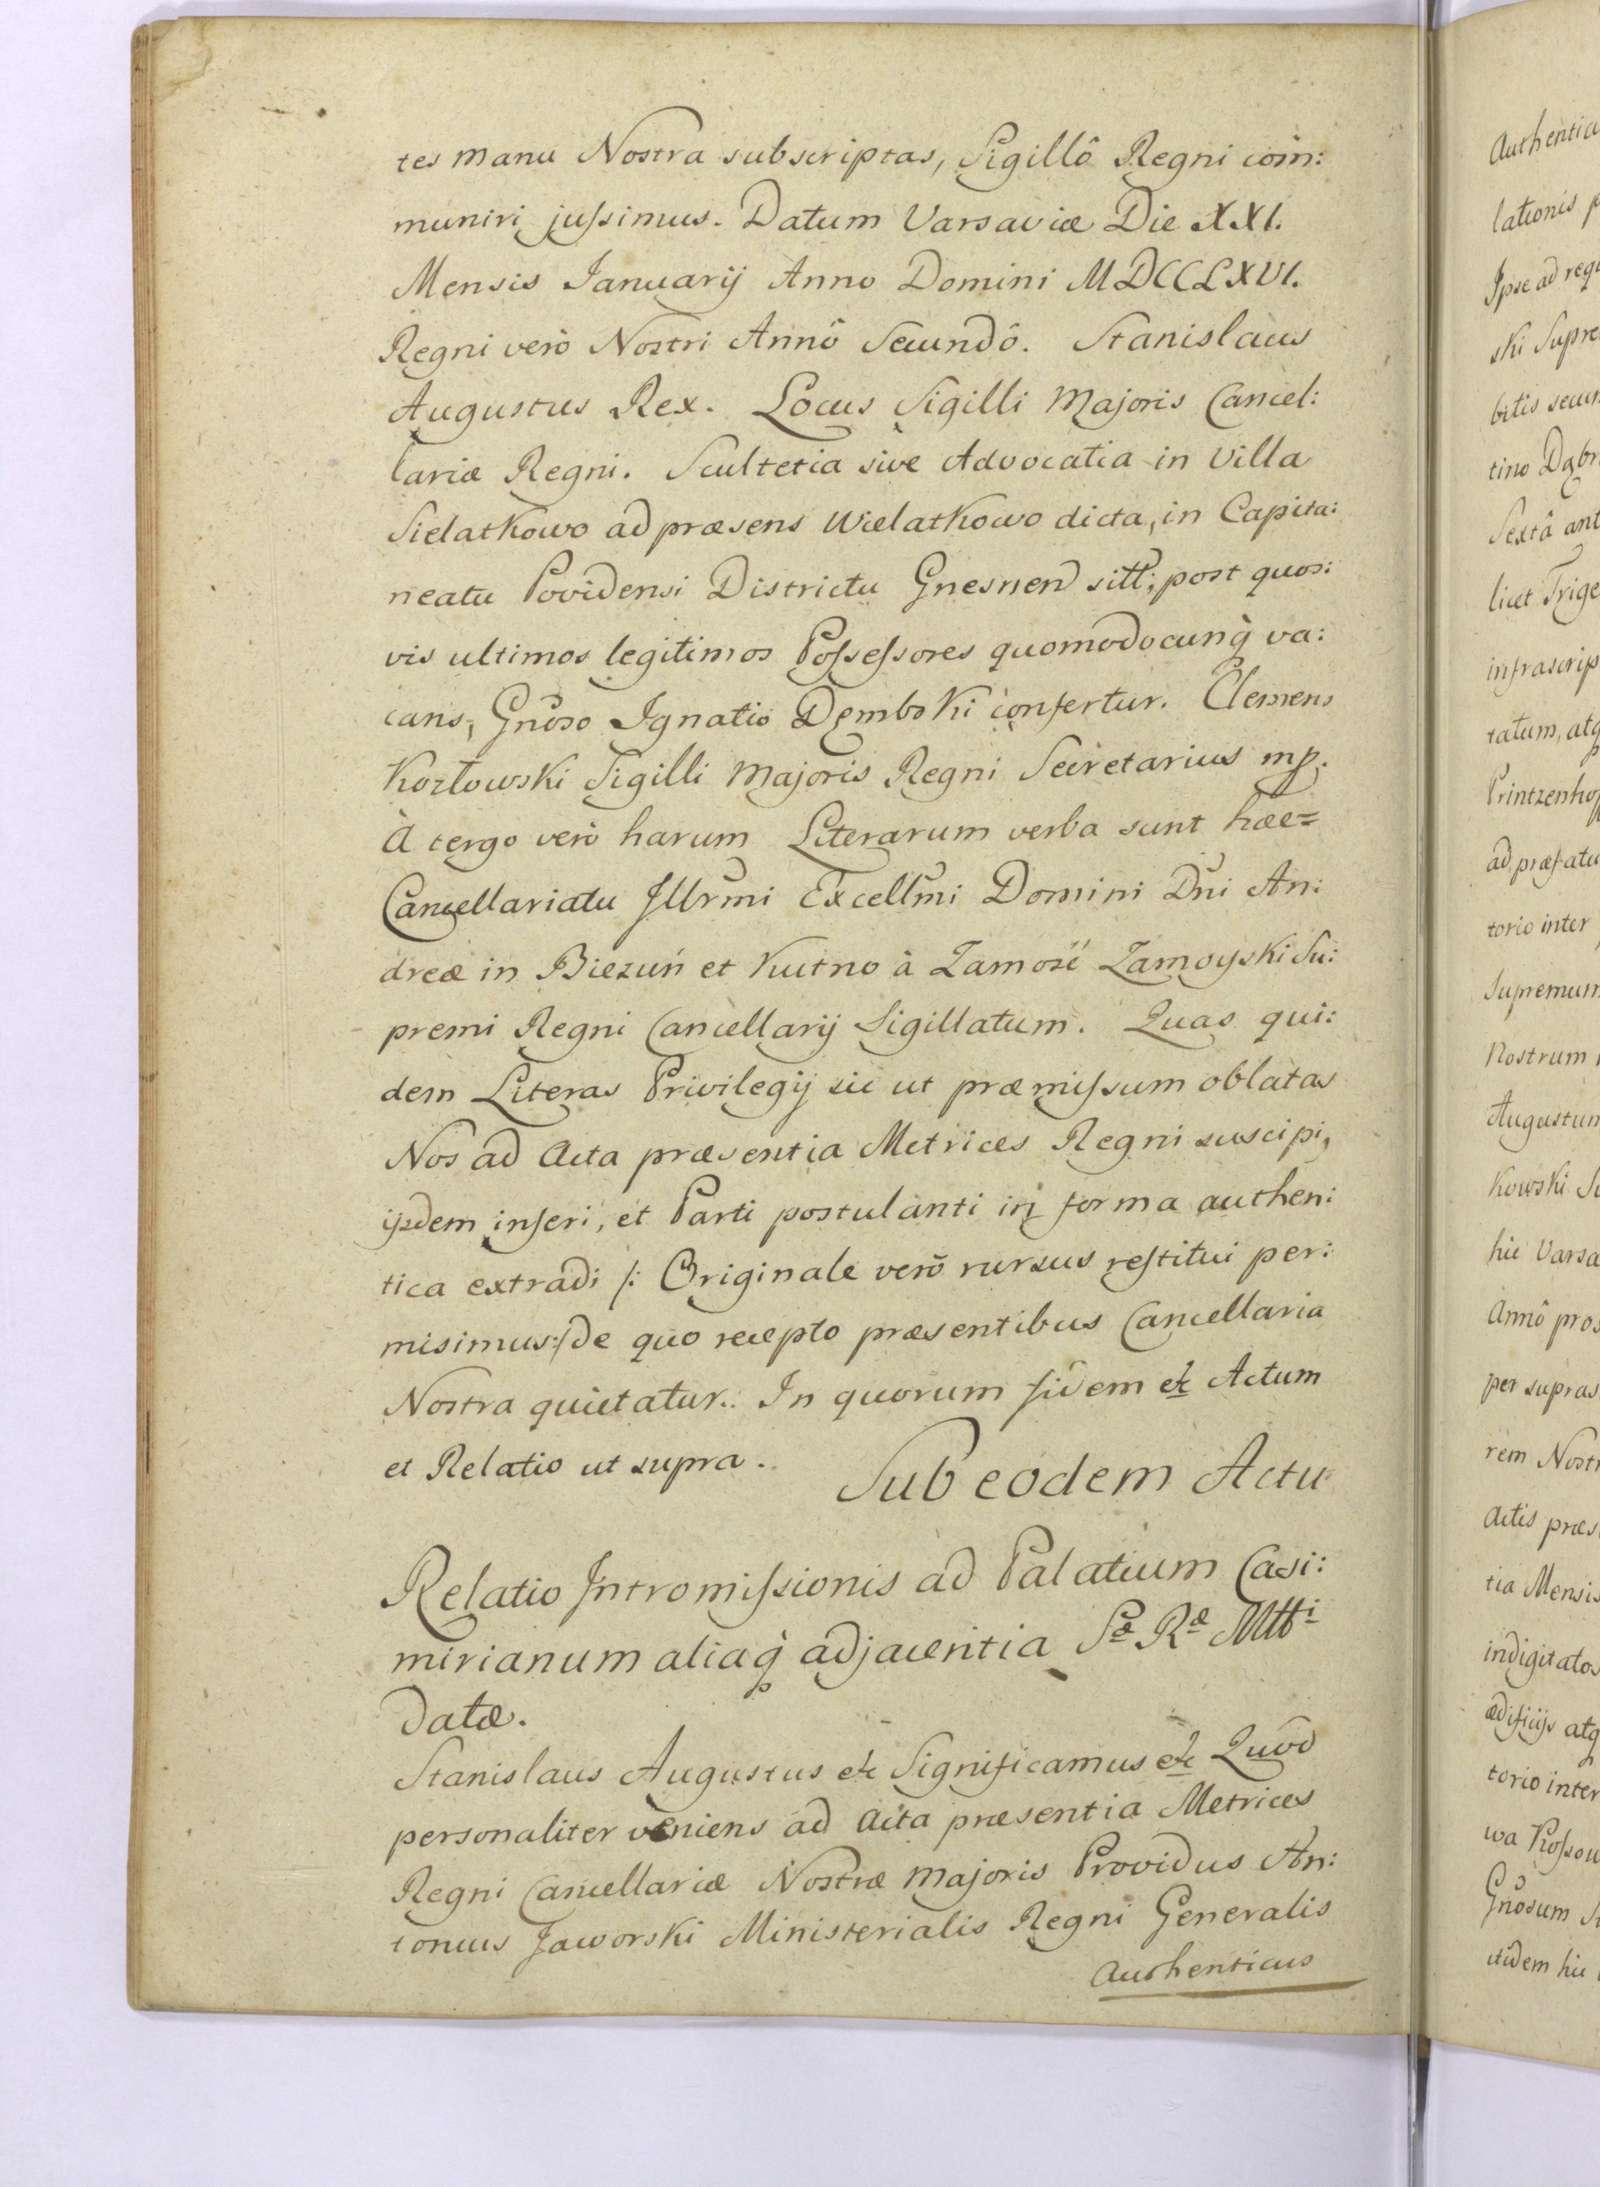 tes manu Nostra subscriptas, Sigillô Regni com̄:
muniri jussimus. Datum Varsaviæ Die XXI.
Mensis Januarij Anno Domini MDCCLXVI.
Regni verò Nostri Annô Secundô. Stanislaus
Augustus Rex. Locus Sigilli Majoris Cancel:
lariæ Regni. Scultetia sive Advocatia in Villa
Sielatkowo ad præsens Wielatkowo dicta, in Capita:
neatu Povidensi Districtu Gnesnen sitt; post quos:
vis ultimos legitimos Possessores quomodocunq̀ va:
cans, Gnoso Ignatio Dembski confertur. Clemens
Kozłowski Sigilli Majoris Regni Secretarius mp.
À tergo verò harum Literarum verba sunt hæc=
Cancellariatu Illrmi Excellmi Domini Dni An:
dreæ in Biezuń et Kutno à Zamość Zamoyski Su:
premi Regni Cancellarij Sigillatum. Quas qui:
dem Literas Privilegij sic ut præmissum oblatas
Nos ad Acta præsentia Metrices Regni suscipi,
ijsdem inseri, et Parti postulanti in forma authen:
tica extradi /: Originale verò rursus restitui per:
misimus:/ de quo recepto præsentibus Cancellaria
Nostra quietatur. In quorum fidem etc Actum
et Relatio ut supra.
Sub eodem Actu
Relatio Intromissionis ad Palatium Casi:
mirianum aliaq̀ adjacentia Sæ Ræ Mtti
datæ.
Stanislaus Augustus etc Significamus etc Quod
personaliter veniens ad Acta præsentia Metrices
Regni Cancellariæ Nostræ Majoris Providus An:
tonius Jaworski Ministerialis Regni Generalis
Authenticus
Authentic
lationis p
Ipse ad requ
ski Supre
bitis secun
tino Dąbr
Sextâ ant
licet Trige
infrascrip
ratum, atq
Printzenhof
ad præfatu
torio inter
Supremum
Nostrum
Augustum
kowski Su
hic Varsa
Annô pros
per supras
rem Nostr
Actis præs
tia Mensis
indigitatos
ædificijs atq
torio inter
wa Kossow
Gnosum S
itidem hic